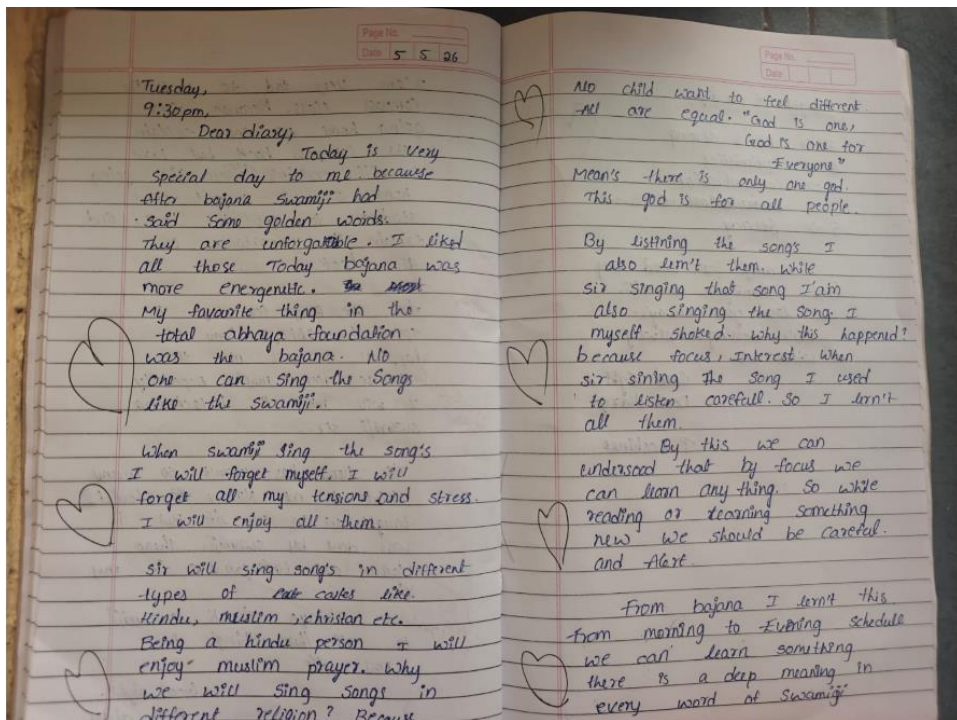 Page No.
Date 5 5 26
Tuesday,
9:30pm,
Dear diary,
Today is very
special day to me because
After bajana swamiji had
said some golden words.
They are unforgattble. I liked
all those Today bajana was
more energenitic.
My favourite thing in the
total abhaya foundation
was the bajana. No
one can sing the songs
like the swamiji.
When swamiji sing the song's
I will forget myself. I will
forget all my tensions and stress.
I will enjoy all them.
Sir will sing song's in different
types of castes like.
Hindu, muslim christan etc.
Being a hindu person I will
enjoy muslim prayer. Why
we will sing songs in
different religion? Because
Page No.
Date
No child want to feel different.
All are equal. "God is one,
God is one for
Everyone"
Mean's there is only one god.
This god is for all people.
By listning the song's I
also lern't them. while
sir singing that song I'am
also singing the song. I
myself shoked. why this happened?
because focus, Interest. When
sir sining the song I used
to listen carefall. So I lern't
all them.
By this we can
understood that by focus we
can learn any thing. So while
reading or learning something
new we should be careful.
and Alert.
From bajana I lern't this
from morning to Evening schedule
we can learn something
there is a deep meaning in
every word of Swamigi